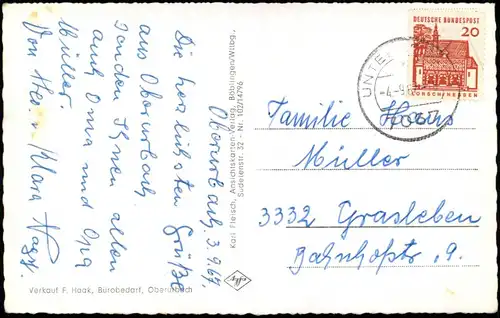 Oberurbach, 3.9.67.
Die herzlichsten Grüße
aus Oberurbach
senden Ihnen allen
auch Oma und Opa
Müller.
Von Herrn Klara Nagy.
Karl Fleisch, Ansichtskarten-Verlag, Böblingen/Wttbg.
Sudetenstr. 32 - Nr. 102/14796
Verkauf F. Haak, Bürobedarf, Oberurbach
DEUTSCHE BUNDESPOST
20
LORSCH/HESSEN
UNTER
-4.-9.6
7061
Familie Hans
Müller
3332 Grasleben
Bahnhofstr. 9.